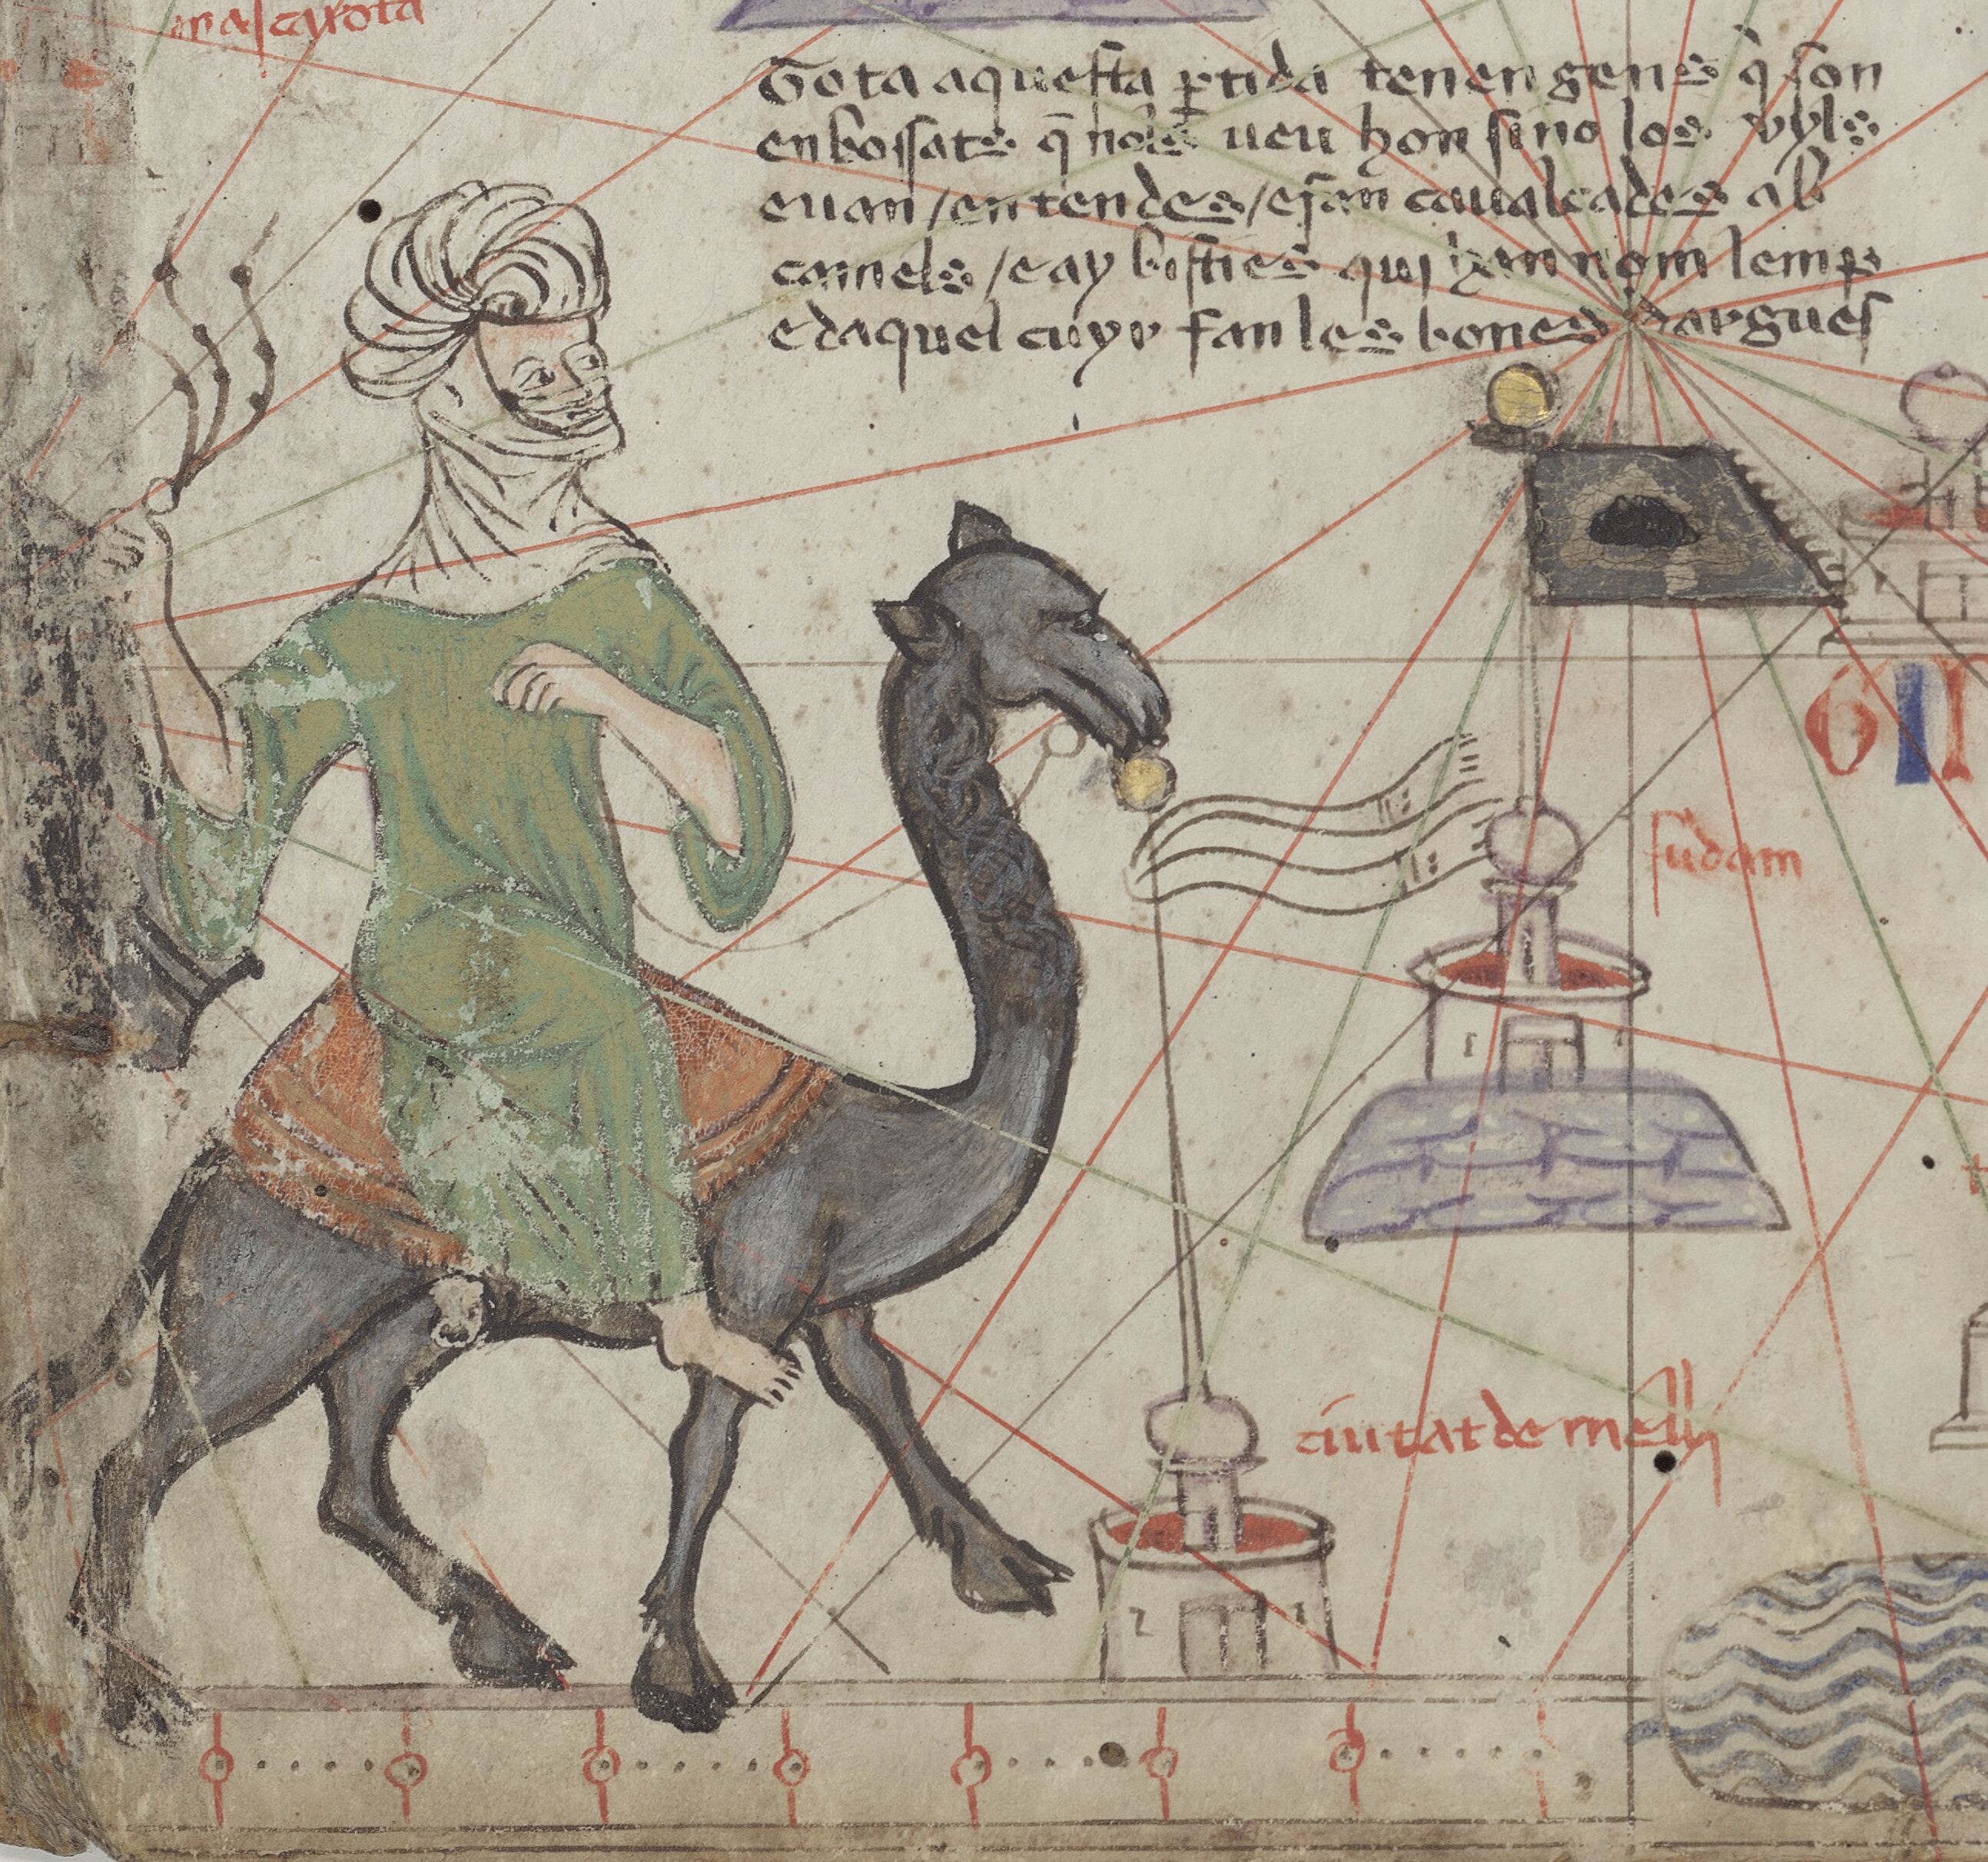 mascarota
Tota aquesta ꝑtida tenen gens q̄ son
enbossats q̄ nols ueu hom sino los uyls
euan / en tendes / e fan caualcades ab
camels / e ay bisties qui han nom lemp
e daquel cuyr fan les bones dargues
GI
sudam
ciutat de melly